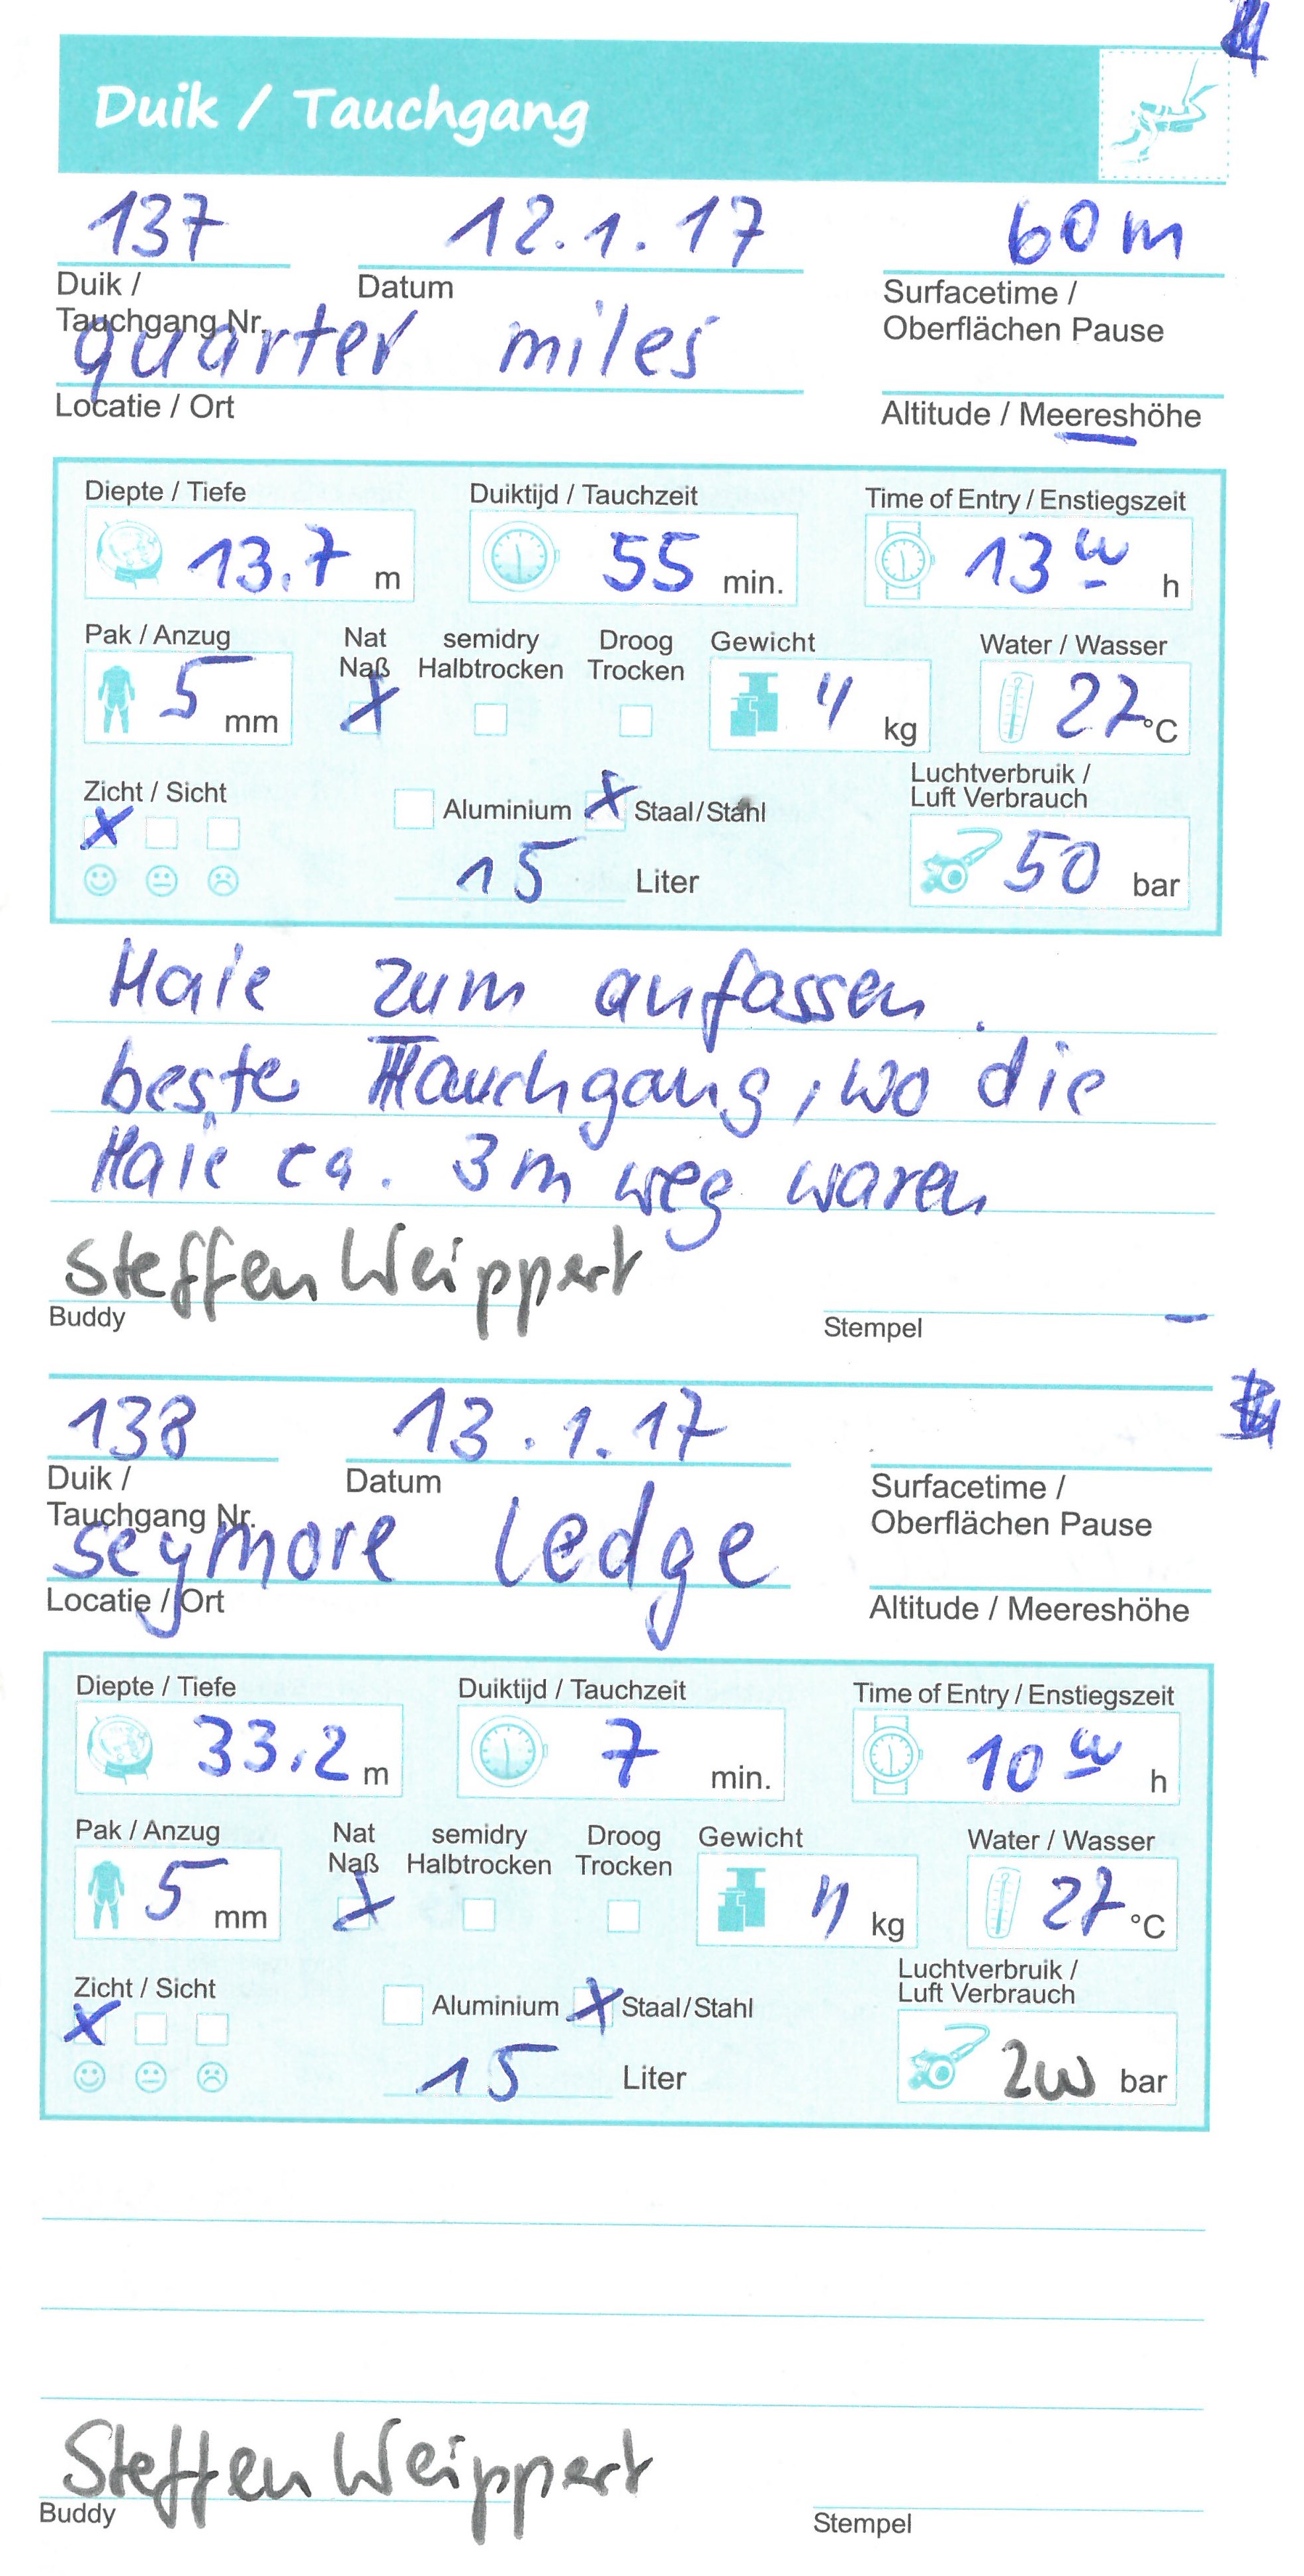 Duik / Tauchgang
137 12.1.17 60 m
Duik / Datum Surfacetime /
Tauchgang Nr. Oberflächen Pause
quarter miles
Locatie / Ort Altitude / Meereshöhe
Diepte / Tiefe Duiktijd / Tauchzeit Time of Entry / Enstiegszeit
13.7 m 55 min. 13 00 h
Pak / Anzug Nat semidry Droog Gewicht Water / Wasser
Naß Halbtrocken Trocken
5 mm X 4 kg 27 °C
Zicht / Sicht Luchtverbruik /
Aluminium X Staal/Stahl Luft Verbrauch
X 15 Liter 50 bar
Haie zum anfassen.
beste Tauchgang, wo die
Haie ca. 3m weg waren
Steffen Weippert
Buddy Stempel
138 13.1.17
Duik / Datum Surfacetime /
Tauchgang Nr. Oberflächen Pause
seymore ledge
Locatie / Ort Altitude / Meereshöhe
Diepte / Tiefe Duiktijd / Tauchzeit Time of Entry / Enstiegszeit
33.2 m 7 min. 10 00 h
Pak / Anzug Nat semidry Droog Gewicht Water / Wasser
Naß Halbtrocken Trocken
5 mm X kg 27 °C
Zicht / Sicht Luchtverbruik /
Aluminium X Staal/Stahl Luft Verbrauch
X 15 Liter 200 bar
Steffen Weippert
Buddy Stempel